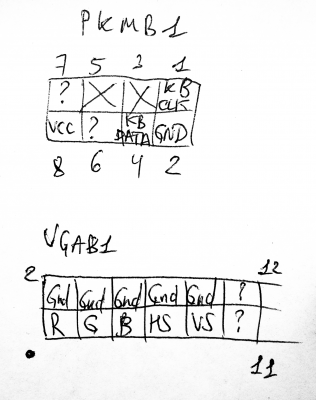 PKMB1
7 5 3 1
? X X KB CLK
VCC ? KB DATA GND
8 6 4 2
VGAB1
2 12
Gnd Gnd Gnd Gnd Gnd ?
R G B HS VS ?
11